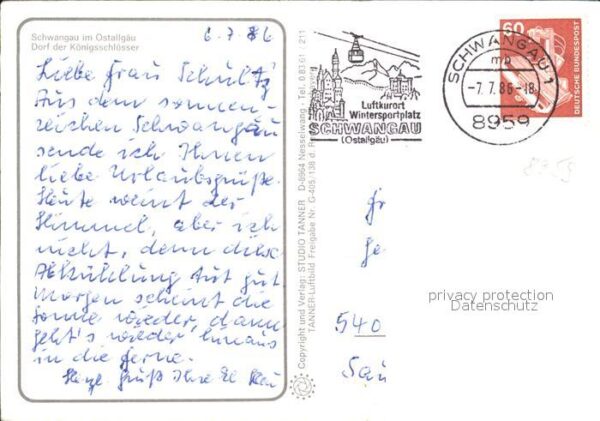 Schwangau im Ostallgäu
Dorf der Königsschlösser
6.7.86
Liebe Frau Schultz
Aus dem sonnen-
reichen Schwangau
sende ich Ihnen
liebe Urlaubsgrüße.
Heute weint der
Himmel, aber ich
nicht, denn diese
Abkühlung tut gut.
Morgen scheint die
Sonne wieder, dann
geht's wieder hinaus
in die Ferne.
Herzl. Grüß Ihre
Copyright und Verlag: STUDIO TANNER D-8964 Nesselwang · Tel. 08361 / 211
TANNER-Luftbild Freigabe Nr G-405/138 d.
Luftkurort
Wintersportplatz
SCHWANGAU
(Ostallgäu)
SCHWANGAU 1
mb
-7.7.86-18
8959
60
DEUTSCHE BUNDESPOST
8959
Fr
Ge
privacy protection
Datenschutz
540